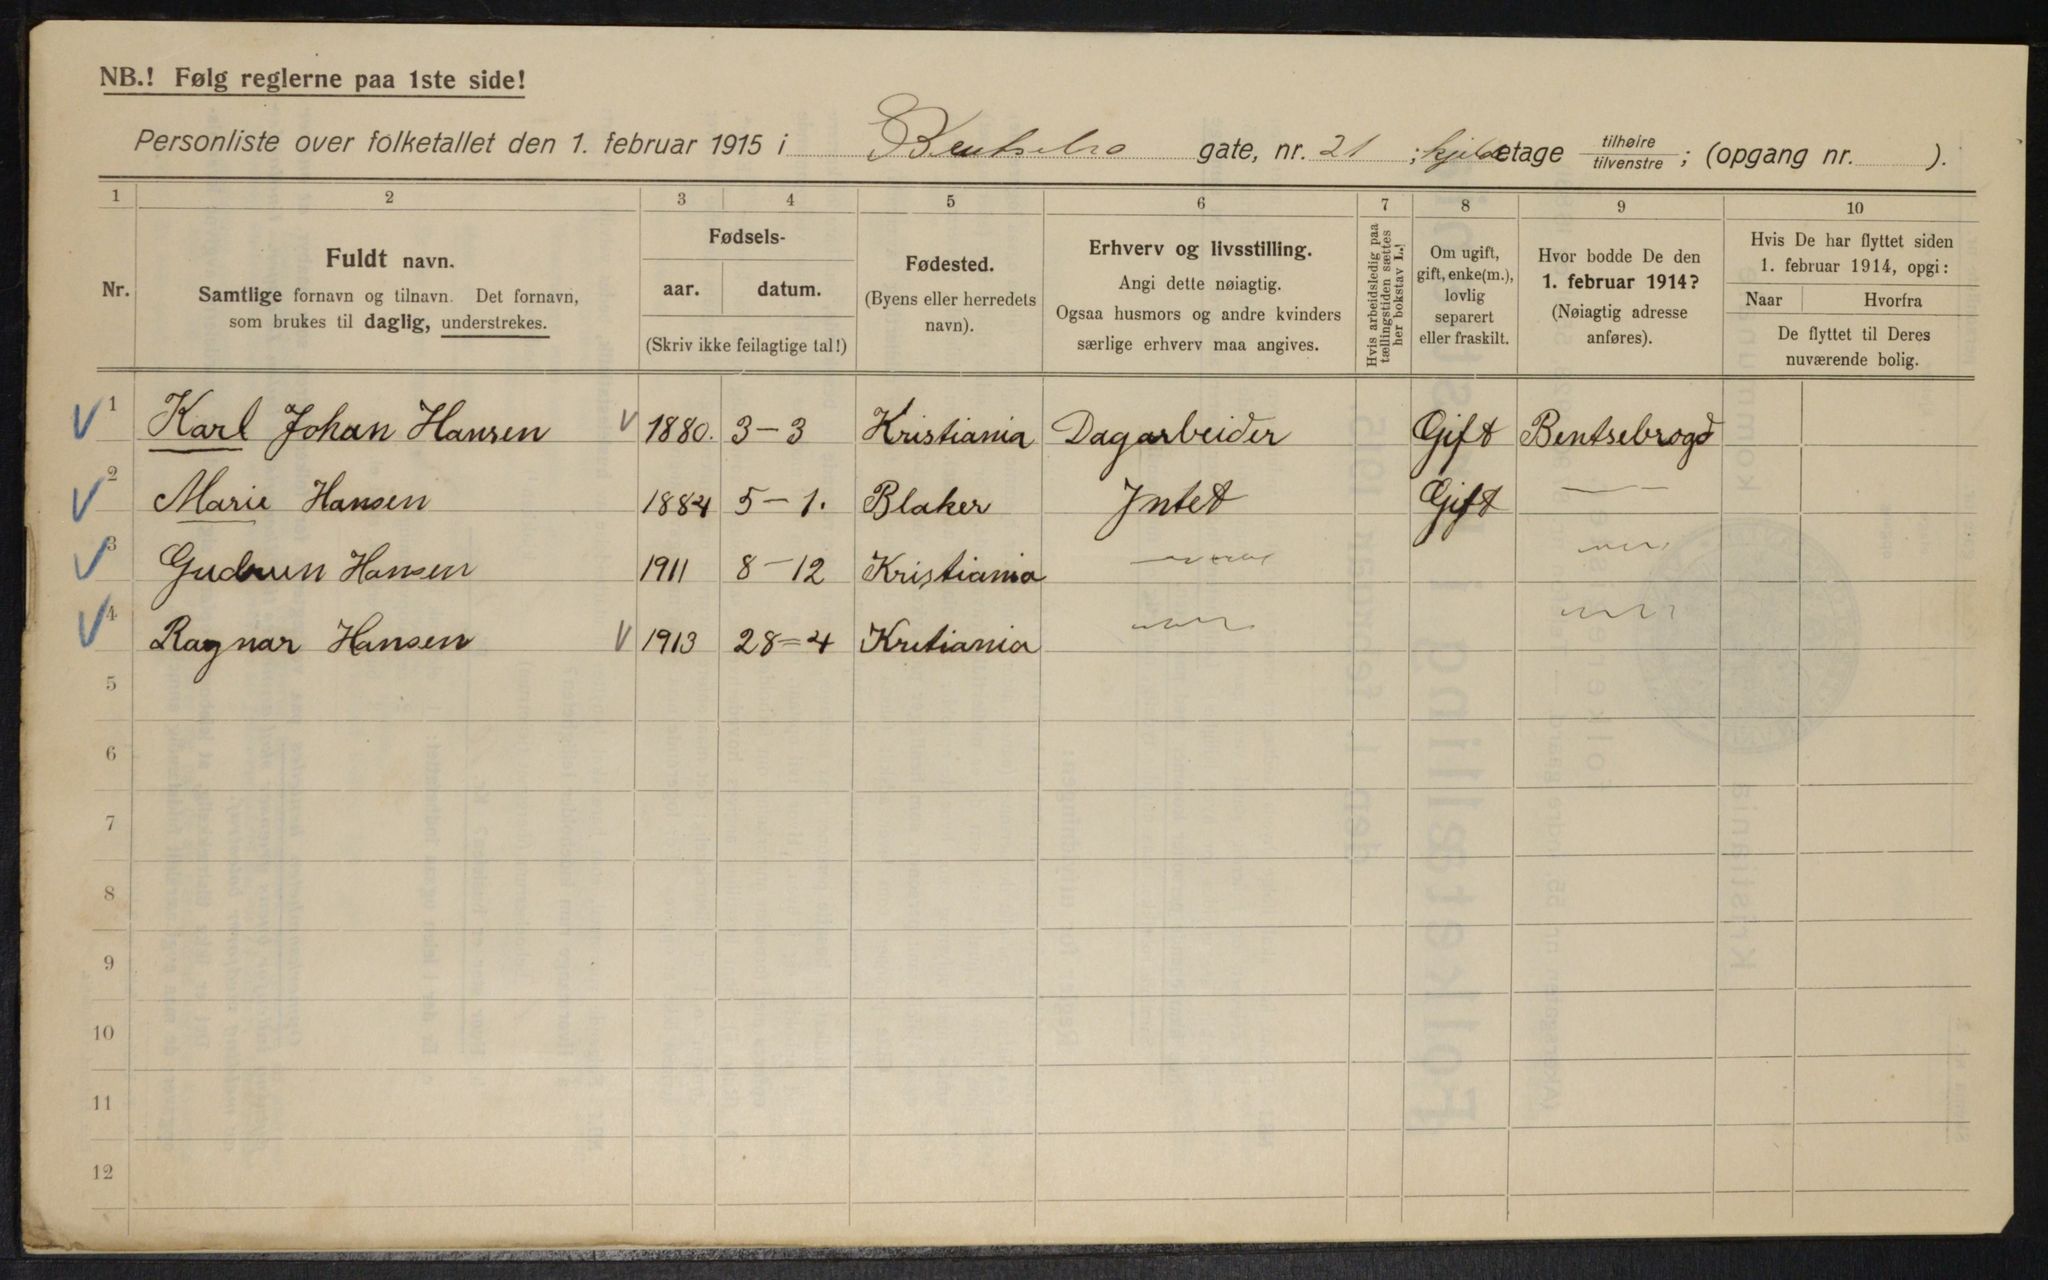 NB.! Følg reglerne paa 1ste side!
Personliste over folketallet den 1. februar 1915 i Bentsebro gate, nr. 21 ; etage tilhøire tilvenstre ; (opgang nr. ).
1 2 3 4 5 6 7 8 9 10
Nr.
Fuldt navn.
Samtlige fornavn og tilnavn. Det fornavn,
som brukes til daglig, understrekes.
Fødsels-
aar. datum.
(Skriv ikke feilagtige tal!)
Fødested.
(Byens eller herredets
navn).
Erhverv og livsstilling.
Angi dette nøiagtig.
Ogsaa husmors og andre kvinders
særlige erhverv maa angives.
Hvis arbeidsledig paa
tællingstiden sættes
her bokstav L.!
Om ugift,
gift, enke(m.),
lovlig
separert
eller fraskilt.
Hvor bodde De den
1. februar 1914?
(Nøiagtig adresse
anføres).
Hvis De har flyttet siden
1. februar 1914, opgi:
Naar Hvorfra
De flyttet til Deres
nuværende bolig.
1 Karl Johan Hansen 1880. 3-3 Kristiania Dagarbeider Gift Bentsebrogd
2 Marie Hansen 1884 5-1. Blaker Intet Gift —
3 Gudrun Hansen 1911 8-12 Kristiania
4 Ragnar Hansen 1913 28=4 Kretiania
5
6
7
8
9
10
11
12